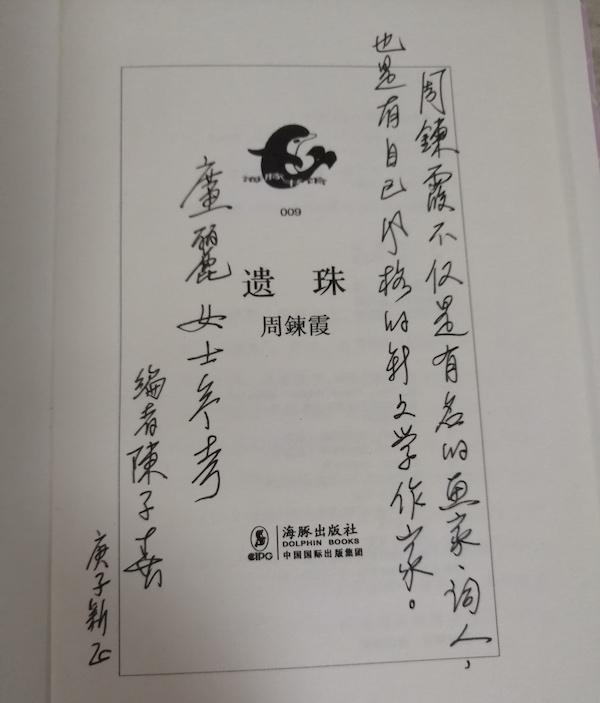 周鍊霞不仅是有名的画家、词人，
也是有自己风格的新文学作家。
海豚书馆
009
遗珠
周鍊霞
廬麗女士参考
编者陳子善
庚子新正
海豚出版社
DOLPHIN BOOKS
CIPG
中国国际出版集团